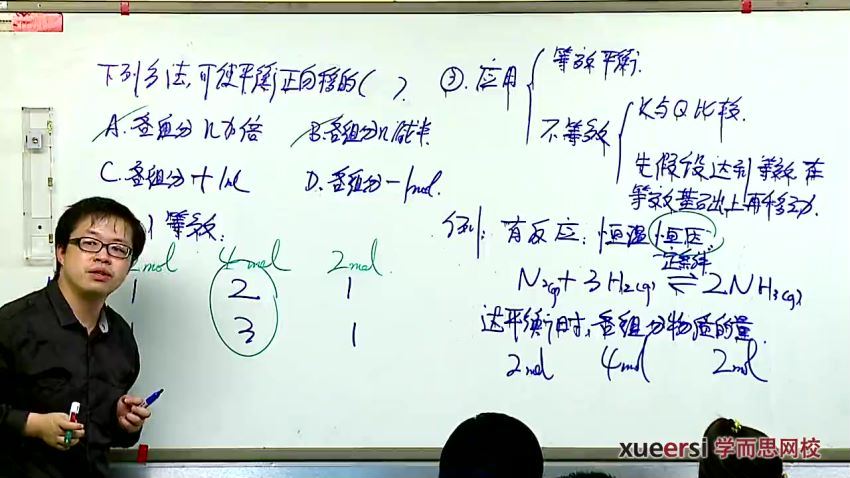 下列方法,可使平衡正向移的( ).
A.各组分n加倍 B.各组分n减半.
C.各组分+1mol D.各组分-1mol.
等效.
2mol 4mol 2mol
1 2 1
3 1
③.应用 等效平衡.
不等效 K与Q比较.
先假设达到等效,在
等效基础上再移动.
例:有反应:恒温恒压.
一定条件
N2(g)+3H2(g)⇌2NH3(g)
达平衡时,各组分物质的量.
2mol 4mol 2mol
xueersi 学而思网校